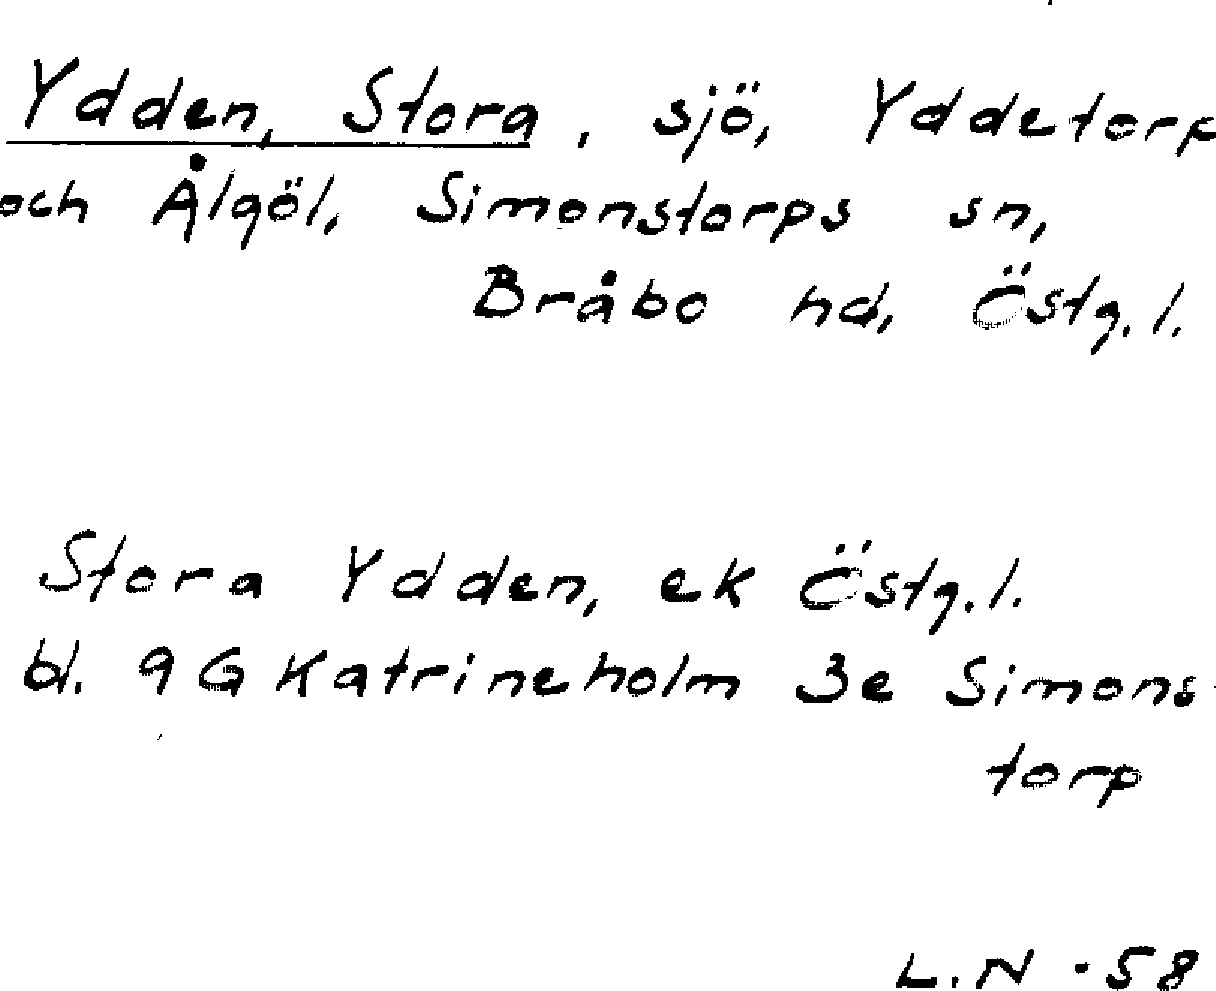 Ydden, Stora, sjö, Yddetorp
och Ålgöl, Simonstorps sn,
Bråbo hd, Östg.l.
Stora Ydden, ek Östg.l.
bl. 9G Katrineholm 3e Simons-
torp
L.N -58